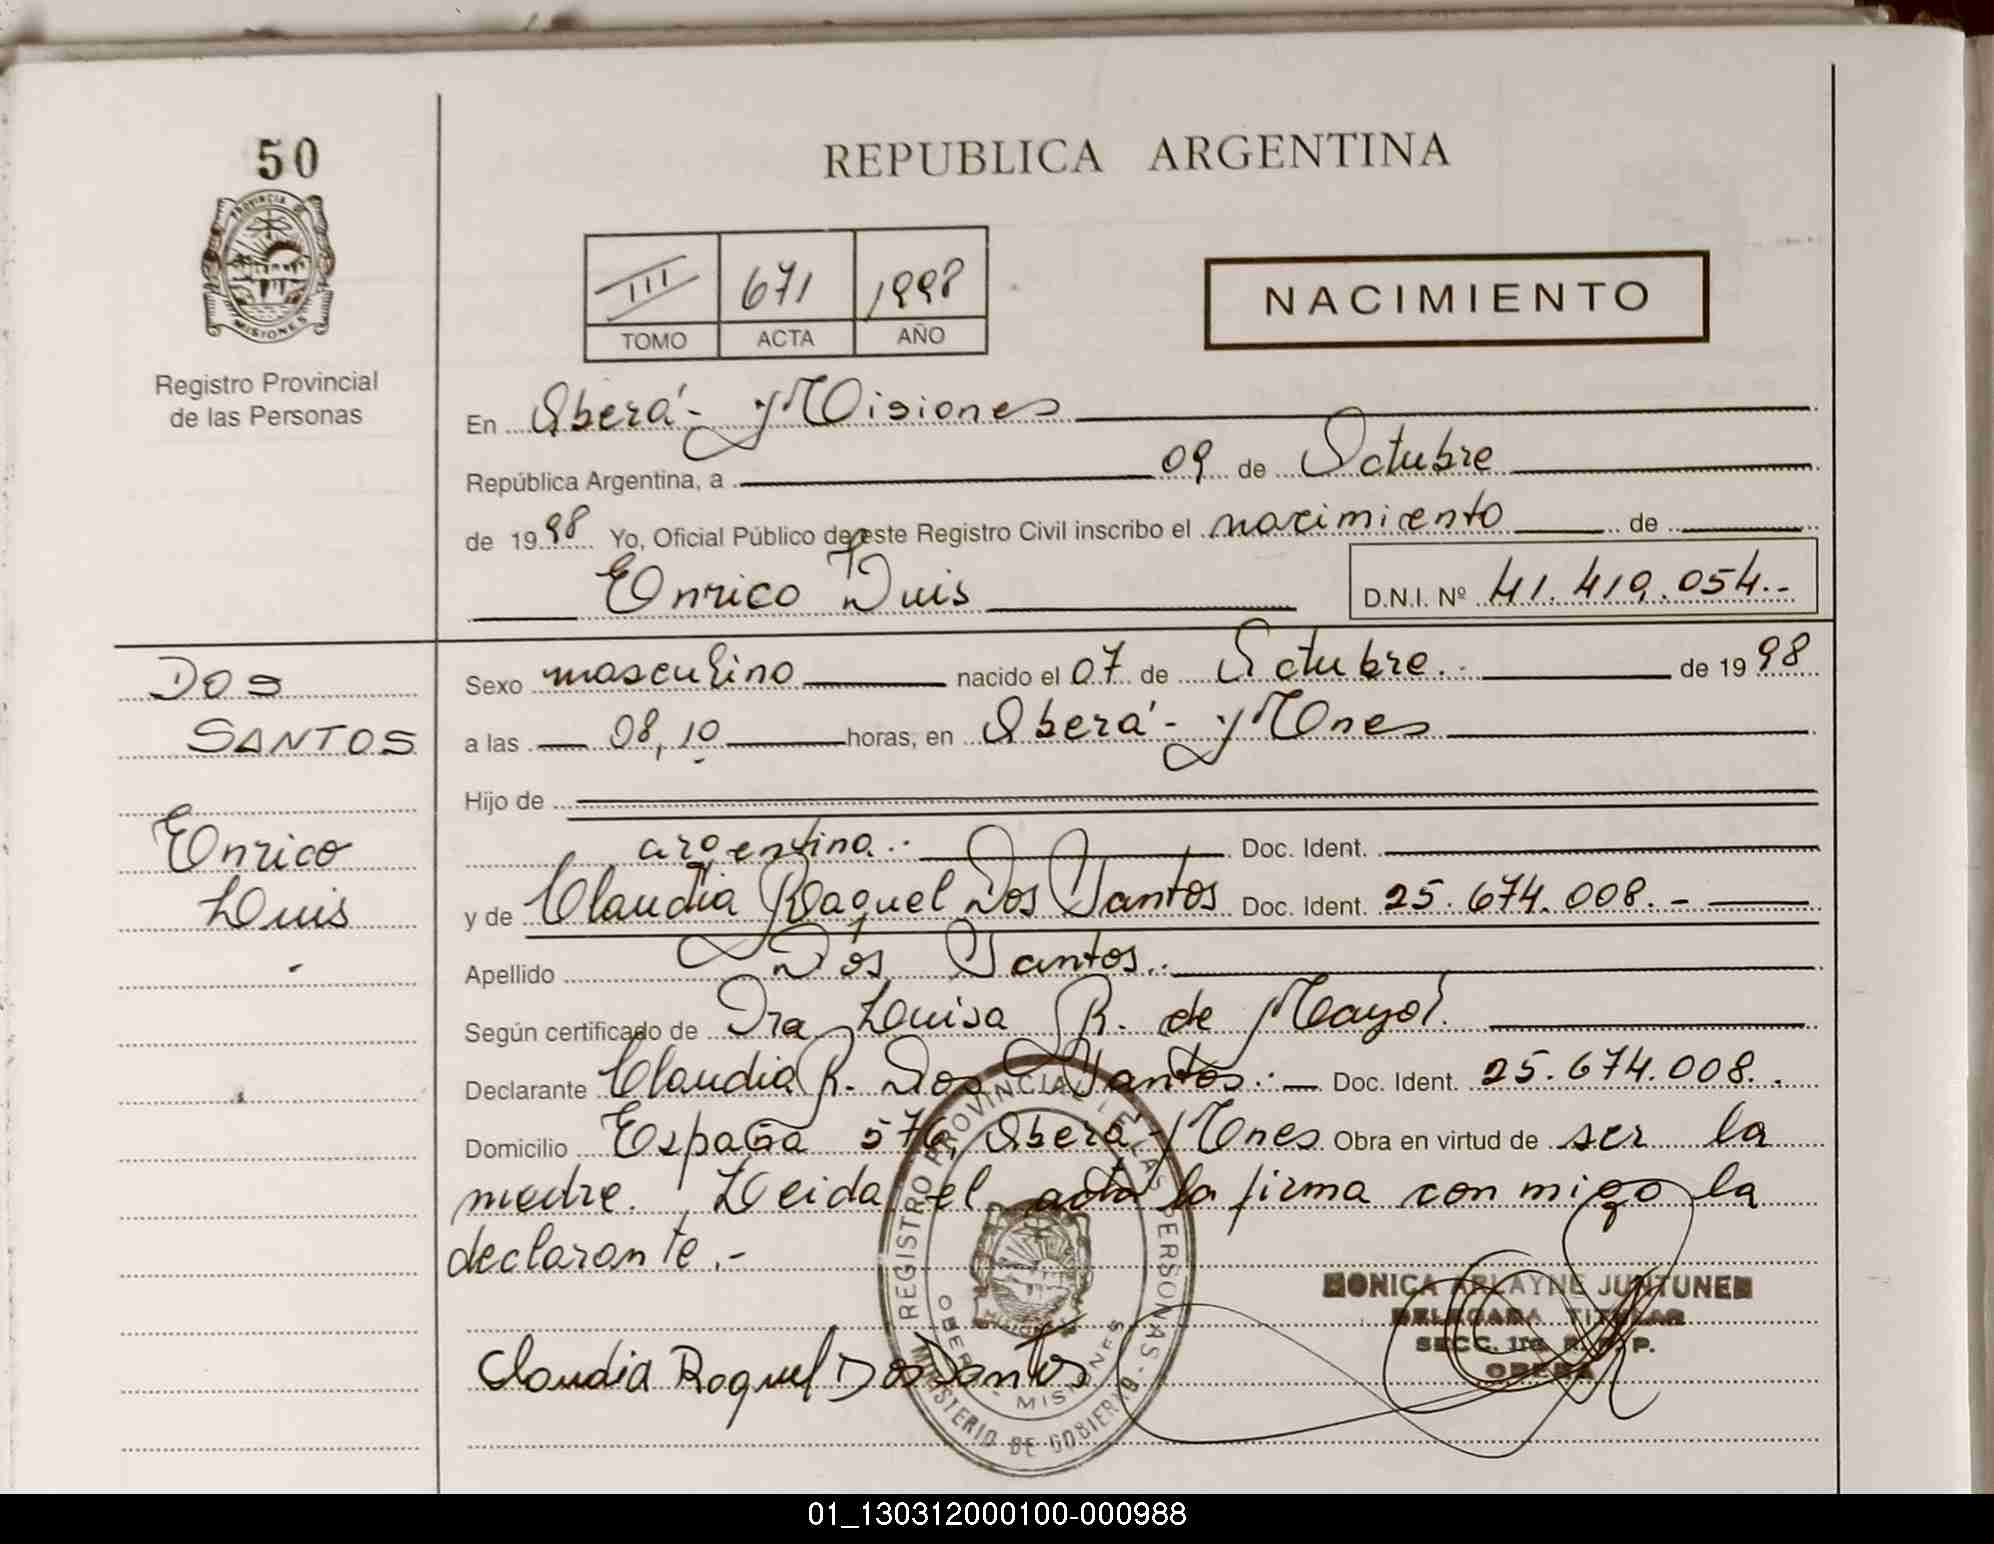 50
PROVINCIA DE
MISIONES
Registro Provincial
de las Personas
REPUBLICA ARGENTINA
III 671 1998
TOMO ACTA AÑO
NACIMIENTO
En Oberá - Misiones
República Argentina, a 09 de Octubre
de 1998 Yo, Oficial Público de este Registro Civil inscribo el nacimiento de
Enrico Luis D.N.I. Nº 41.419.054.-
DOS
SANTOS
Enrico
Luis
-
Sexo masculino nacido el 07 de Octubre. de 1998
a las 08,10 horas, en Oberá - Mnes
Hijo de
argentina. Doc. Ident.
y de Claudia Raquel Dos Santos Doc. Ident. 25.674.008.-
Apellido Dos Santos.
Según certificado de Dra Louisa R. de Mayol.
Declarante Claudia R. Dos Santos. Doc. Ident. 25.674.008.
Domicilio España 576, Oberá - Mnes Obra en virtud de ser la
madre. Leida el acta la firma conmigo la
declarante.-
REGISTRO PROVINCIAL DE LAS PERSONAS - MINISTERIO DE GOBIERNO
OBERA - MISIONES
MONICA ARLAYNE JUNTUNEN
DELEGADA TITULAR
SECC. 1ra R. P. P.
OBERA
Claudia Raquel Dos Santos
01_130312000100-000988